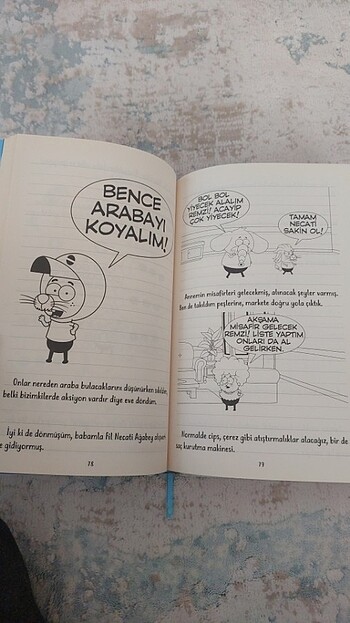 BENCE
ARABAYI
KOYALIM!
Onlar nereden araba bulacaklarını düşünürken
belki bizimkilerde aksiyon vardır diye eve döndüm.
İyi ki de dönmüşüm, babamla Fil Necati Ağabey
gidiyormuş.
78
BOL BOL
YİYECEK ALALIM
REMZİ! ACAYİP
ÇOK YİYECEK!
TAMAM
NECATİ
SAKİN OL!
Annemin misafirleri gelecekmiş, alınacak şeyler varmış.
Ben de takıldım peşlerine, markete doğru yola çıktık.
AKŞAMA
MİSAFİR GELECEK
REMZİ! LİSTE YAPTIM
ONLARI DA AL
GELİRKEN.
Normalde cips, çerez gibi atıştırmalıklar alacağız, bir de
saç kurutma makinesi.
79